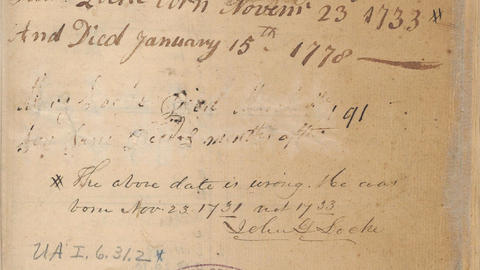 Locke born Novemr 23 1733 *
And Died January 15th 1778
Mary Locke Died 191
months after
* The above date is wrong. He was
born Nov. 23 1731 not 1733
John G Locke
UA I. 6. 31. 2 *